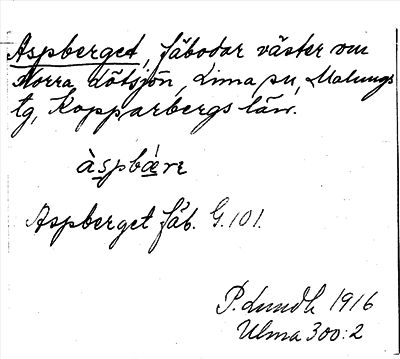 Aspberget, fäbodar väster om
Norra Lötsjön, Lima sn, Malungs
tg, Kopparbergs län.
àspbǽrε
Aspberget fäb. G.101.
P. Lundh 1916
Ulma 300:2